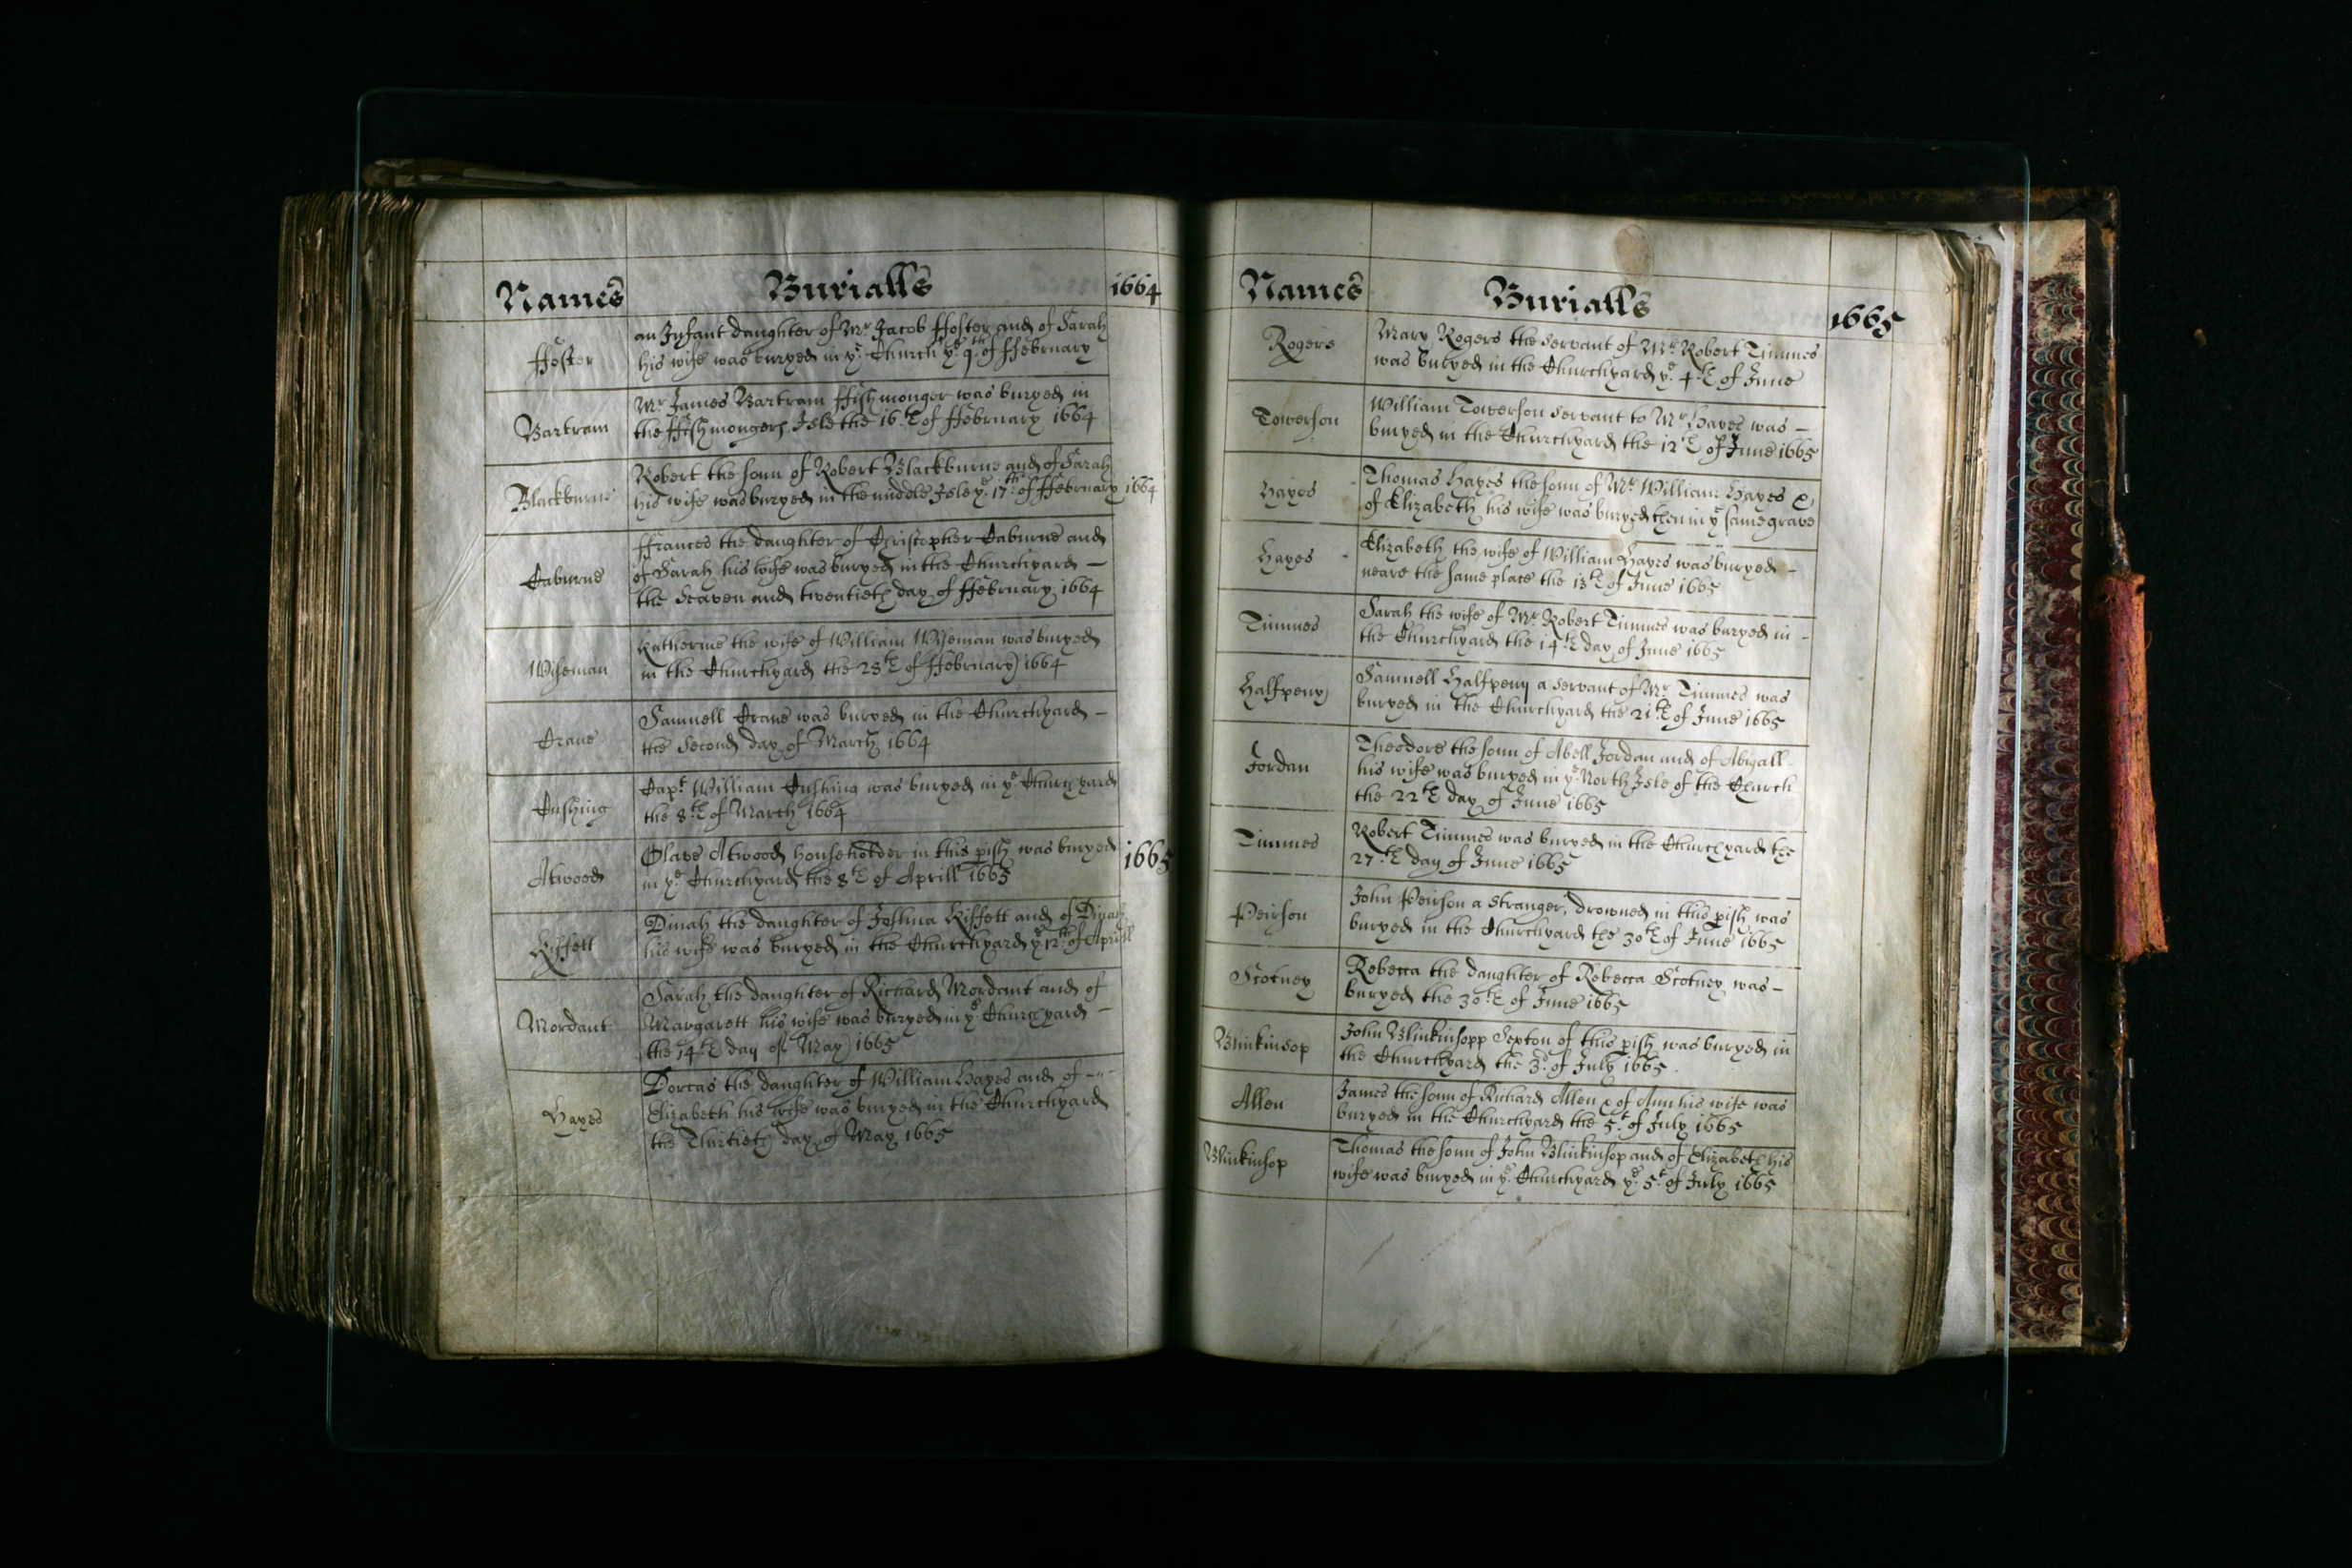 Names Burialls 1664
ffoster
an Infant daughter of Mr Jacob ffoster and of Sarah
his wife was buryed in ye Church ye 9th of ffebruary
Bartram
Mr James Bartram ffishmonger was buryed in
the ffishmongers Isle the 16th of ffebruary 1664
Blackburne
Robert the sonn of Robert Blackburne and of Sarah
his wife was buryed in the middle Isle ye 17th of ffebruary 1664
Caburne
ffrances the daughter of Christopher Caburne and
of Sarah his wife was buryed in the Churchyard –
the Seaven and twentieth day of ffebruary 1664
Wiseman
Katherine the wife of William Wiseman was buryed
in the Churchyard the 28th of ffebruary 1664
Crane
Samuell Crane was buryed in the Churchyard –
the Second day of March 1664
Cushing
Capt William Cushing was buryed in ye Churchyard
the 8th of March 1664
Atwood
Olave Atwood householder in this pish was buryed
in ye Churchyard the 8th of Aprill 1665
1665
Kiffett
Dinah the daughter of Joshua Kiffett and of Dinah
his wife was buryed in the Churchyard ye 12th of Aprill
Mordant
Sarah the daughter of Richard Mordant and of
Margarett his wife was buryed in ye Churchyard –
the 14th day of May 1665
Hayes
Dorcas the daughter of William Hayes and of –
Elizabeth his wife was buryed in the Churchyard
the Thirtieth day of May 1665
Names Burialls 1665
Rogers
Mary Rogers the servant of Mr Robert Timmes
was buryed in the Churchyard ye 4th of June
Towerson
William Towerson servant to Mr Hayes was –
buryed in the Churchyard the 12th of June 1665
Hayes
Thomas Hayes the sonn of Mr William Hayes &
of Elizabeth his wife was buryed then in ye same grave
Hayes
Elizabeth the wife of William Hayes was buryed –
neare the same place the 13th of June 1665
Timmes
Sarah the wife of Mr Robert Timmes was buryed in –
the Churchyard the 14th day of June 1665
Halfpeny
Samuell Halfpeny a servant of Mr Timmes was
buryed in the Churchyard the 21th of June 1665
Jordan
Theodore the sonn of Abell Jordan and of Abigall
his wife was buryed in ye North Isle of the Church
the 22th day of June 1665
Timmes
Robert Timmes was buryed in the Churchyard the
27th day of June 1665
Peirson
John Peirson a stranger, drowned in this pish was
buryed in the Churchyard the 30th of June 1665
Scotney
Rebecca the daughter of Rebecca Scotney was –
buryed the 30th of June 1665
Blinkinsop
John Blinkinsopp Sexton of this pish was buryed in
the Churchyard the 3d of July 1665
Allen
James the sonn of Richard Allen & of Ann his wife was
buryed in the Churchyard the 5t of July 1665
Blinkinsop
Thomas the sonn of John Blinkinsop and of Elizabeth his
wife was buryed in ye Churchyard ye 5t of July 1665